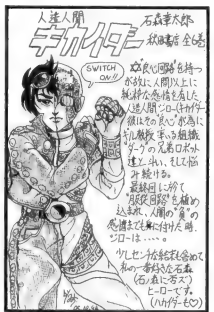 人造人間
キカイダー
石森章太郎
秋田書店 全6巻
SWITCH
ON!!
"良心回路"を持つ
が故に、人間以上に
純粋な感情を有した
人造人間ジロー(キカイダー)
彼はその"良心"が為に
ギル教授率いる組織
ダークの兄弟ロボット
達と斗い、そして悩
み続ける。
最終回に於て
"服従回路"を埋め
込まれ、人間の"負"の
感情までも身に付けた時、
ジローは・・・・。
少しセンチな結末も含めて
私の一番好きな石森
(石ノ森に非ズ)
ヒーローです。
(ハカイダーも♡)